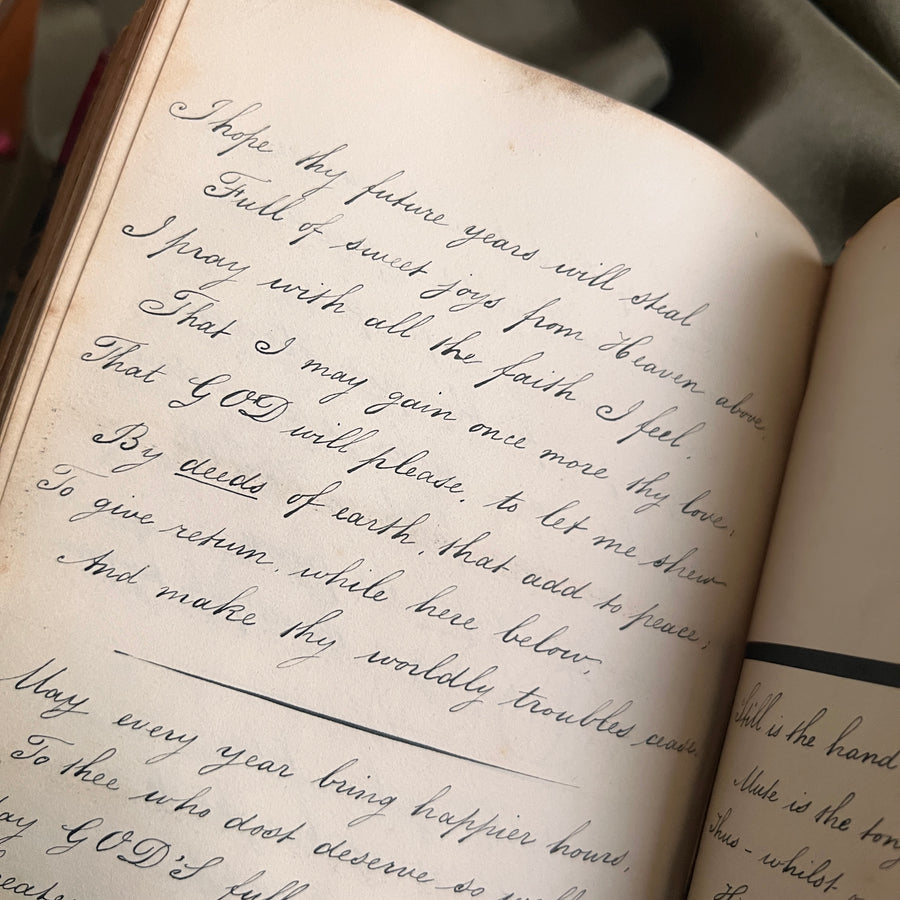 I hope thy future years will steal
Full of sweet joys from Heaven above.
I pray with all the faith I feel.
That I may gain once more thy love.
That GOD will please, to let me shew
By deeds of earth, that add to peace;
To give return, while here below,
And make thy worldly troubles cease.
May every year bring happier hours,
To thee who dost deserve so
GOD'S full
Still is the hand
Mute is the
Thus - whilst